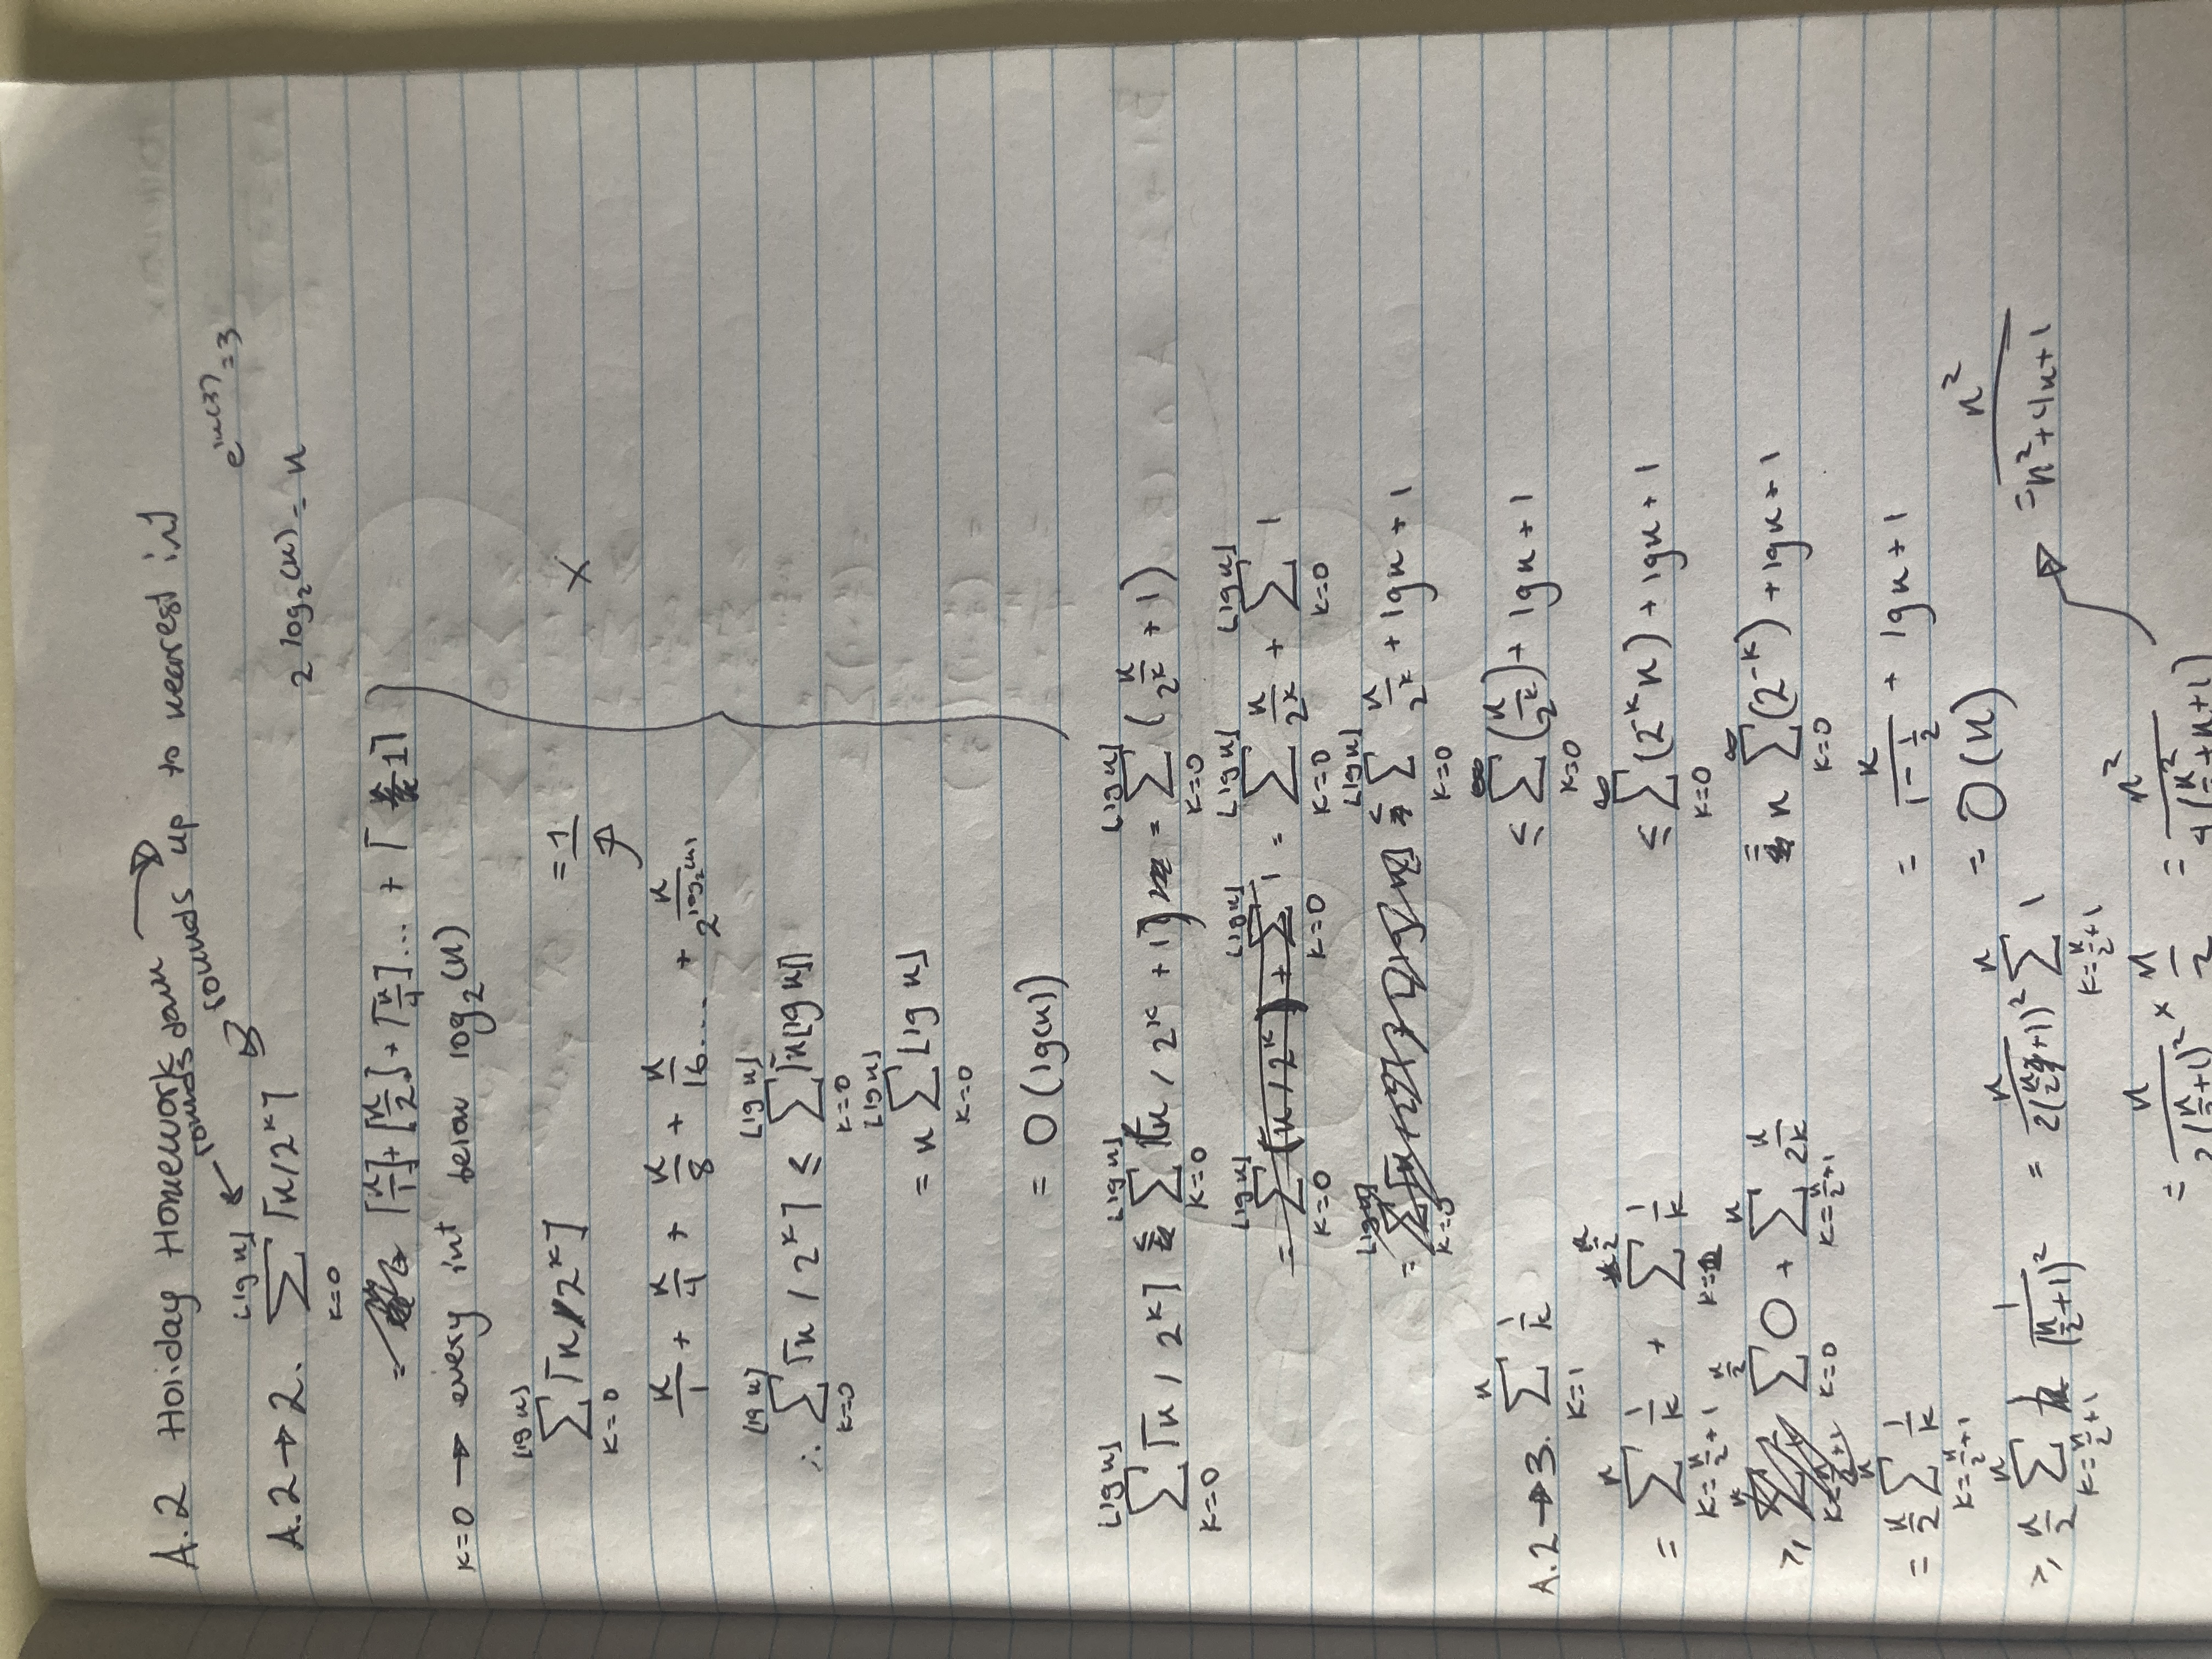 A.2 Holiday Homework rounds down → rounds up to nearest int
e^ln(3) = 3
A.2 → 2. ∑_{k=0}^{⌊lg n⌋} ⌈n/2^k⌉
2^log₂(n) = n
= ⌈n/1⌉ + ⌈n/2⌉ + ⌈n/4⌉ ... + ⌈1⌉
k=0 → every int below log₂(n)
∑_{k=0}^{⌊lg n⌋} ⌈n/2^k⌉ = 1
×
n/1 + n/4 + n/8 + n/16 .... + n/2^log₂(n)
∴ ∑_{k=0}^{⌊lg n⌋} ⌈n/2^k⌉ ≤ ∑_{k=0}^{⌊lg n⌋} ⌈n⌊lg n⌋⌉
= n ∑_{k=0}^{⌊lg n⌋} ⌊lg n⌋
= O(lg(n))
∑_{k=0}^{⌊lg n⌋} ⌈n/2^k⌉ ≤ ∑_{k=0}^{⌊lg n⌋} (n/2^k + 1) = ∑_{k=0}^{⌊lg n⌋} (n/2^k + 1)
= ∑_{k=0}^{⌊lg n⌋} (n/2^k) + ∑_{k=0}^{⌊lg n⌋} 1 = ∑_{k=0}^{⌊lg n⌋} n/2^k + ∑_{k=0}^{⌊lg n⌋} 1
≤ ∑_{k=0}^{⌊lg n⌋} n/2^k + lg n + 1
≤ ∑_{k=0}^{∞} (n/2^k) + lg n + 1
≤ ∑_{k=0}^{∞} (2^-k n) + lg n + 1
= n ∑_{k=0}^{∞} (2^-k) + lg n + 1
= n/(1 - 1/2) + lg n + 1
= O(n)
A.2 → 3. ∑_{k=1}^{n} 1/k
= ∑_{k=n/2+1}^{n} 1/k + ∑_{k=1}^{n/2} 1/k
≥ ∑_{k=0}^{n/2} 0 + ∑_{k=n/2+1}^{n} n/2k
= n/2 ∑_{k=n/2+1}^{n} 1/k
≥ n/2 ∑_{k=n/2+1}^{n} 1/(n/2+1)² = n/2(n/2+1)² ∑_{k=n/2+1}^{n} 1
= n/2(n/2+1)² × n/2 = n²/4(n²/ + n + 1)
→ = n²/n²+4n+1